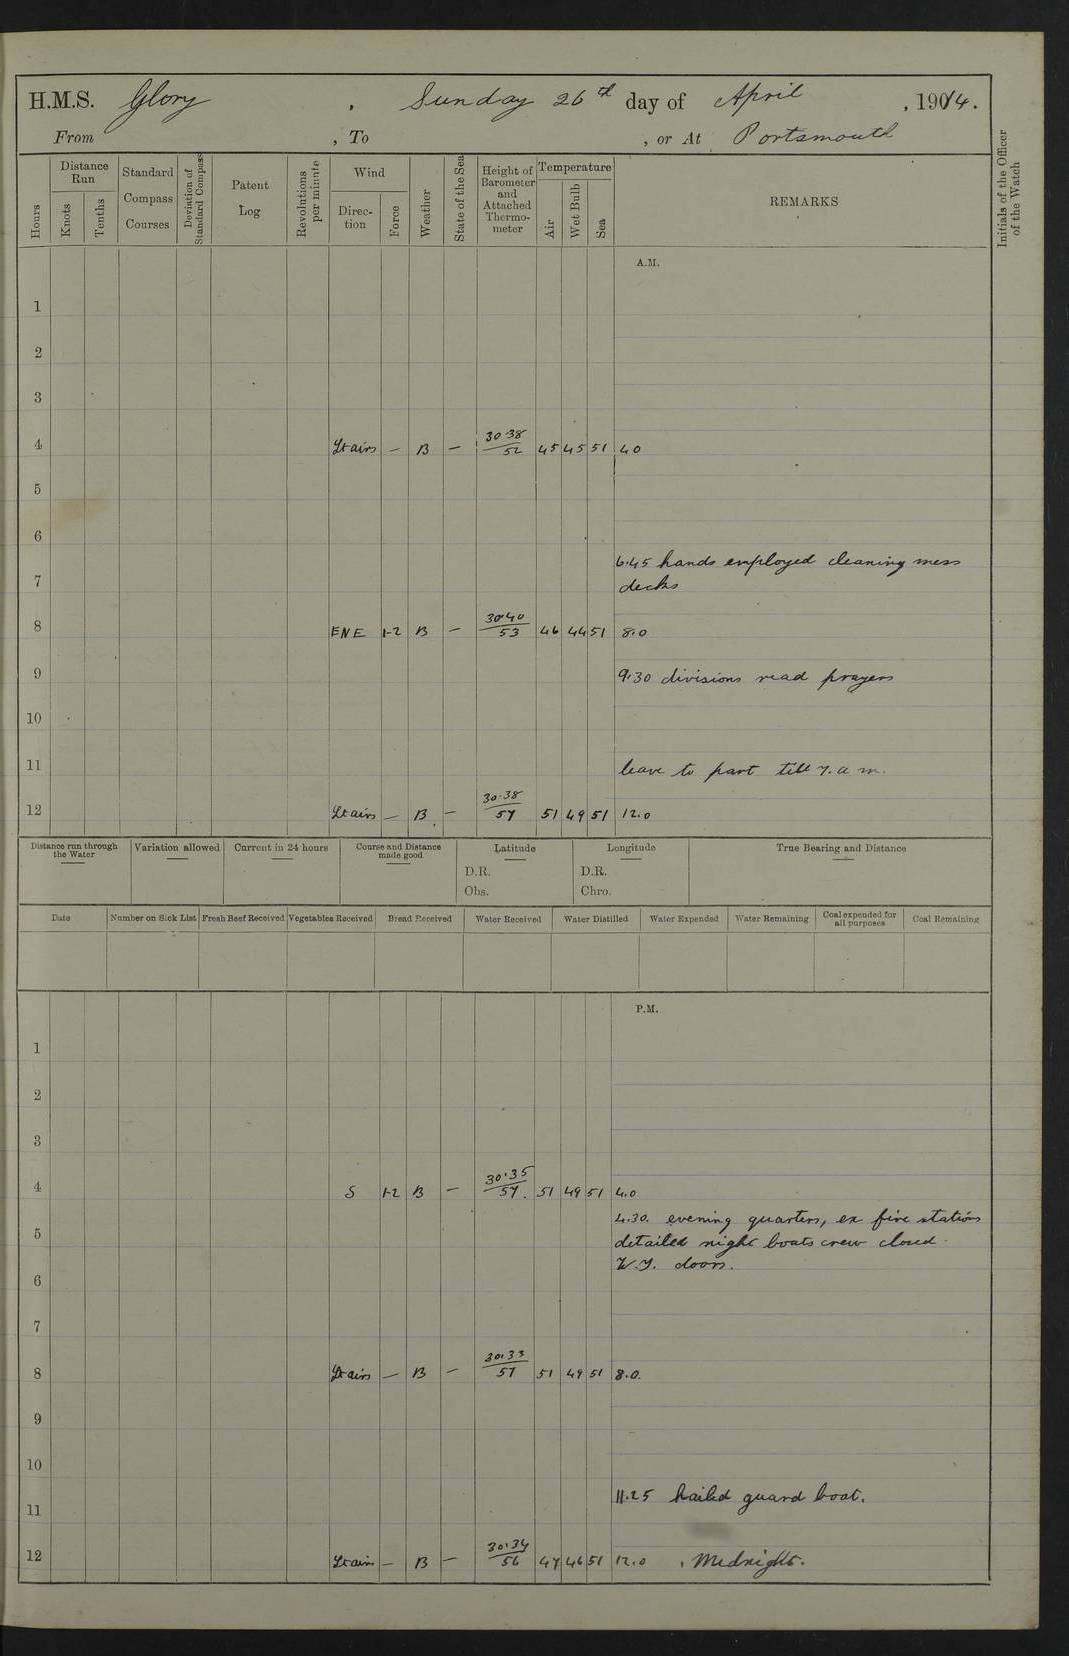 H.M.S. Glory, Sunday 26th day of April, 1914.
From , To , or At Portsmouth
Hours
Distance Run
Knots
Tenths
Standard Compass Courses
Deviation of Standard Compass
Patent Log
Revolutions per minute
Wind
Direc-tion
Force
Weather
State of the Sea
Height of Barometer and Attached Thermo-meter
Temperature
Air
Wet Bulb
Sea
REMARKS
Initials of the Officer of the Watch
A.M.
1
2
3
4 Lt airs — B — 30.38/52 45 45 51 4.0
5
6
6.45 hands employed cleaning mess
7 decks
8 ENE 1-2 B — 30.40/53 46 44 51 8.0
9 9.30 divisions read prayers
10
11 leave to part till 7. a m.
12 Lt airs — B — 30.38/57 51 49 51 12.0
Distance run through the Water
Variation allowed
Current in 24 hours
Course and Distance made good
Latitude
D.R.
Obs.
Longitude
D.R.
Chro.
True Bearing and Distance
Date
Number on Sick List
Fresh Beef Received
Vegetables Received
Bread Received
Water Received
Water Distilled
Water Expended
Water Remaining
Coal expended for all purposes
Coal Remaining
P.M.
1
2
3
4 S 1-2 B — 30.35/57 51 49 51 4.0
4.30. evening quarters, ex fire stations
5 detailed night boats crew closed
W.T. doors.
6
7
8 Lt airs — B — 30.33/57 51 49 51 8.0.
9
10
11.25 hailed guard boat.
11
12 Lt airs — B — 30.34/56 47 46 51 12.0 Midnight.